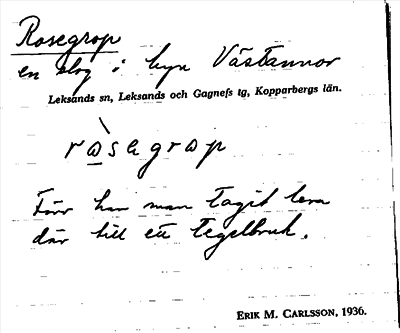 Rosegrop
en slog i byn Västannor
Leksands sn, Leksands och Gagnefs tg, Kopparbergs län.
ròsegrop
Förr har man tagit lera
där till ett tegelbruk.
ERIK M. CARLSSON, 1936.